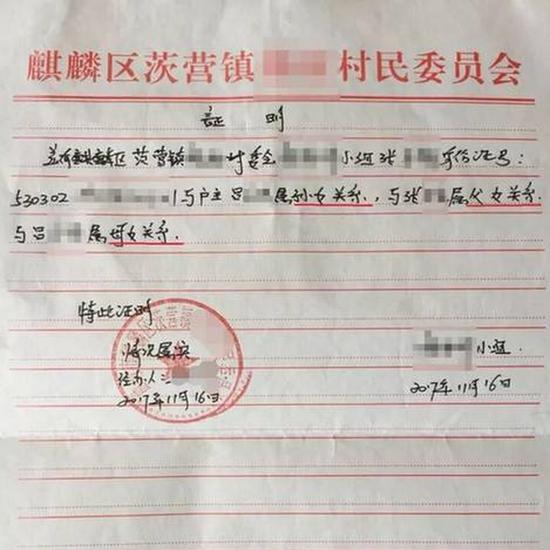 麒麟区茨营镇 村民委员会
证 明
兹有麒麟区茨营镇 村委会 小组张 身份证号:
530302 1与户主吕 属孙女关系,与张 属父女关系
与吕 属母女关系.
特此证明
麒麟区茨营镇
情况属实 小组
经办人:
2017年11月16日 2017年11月16日